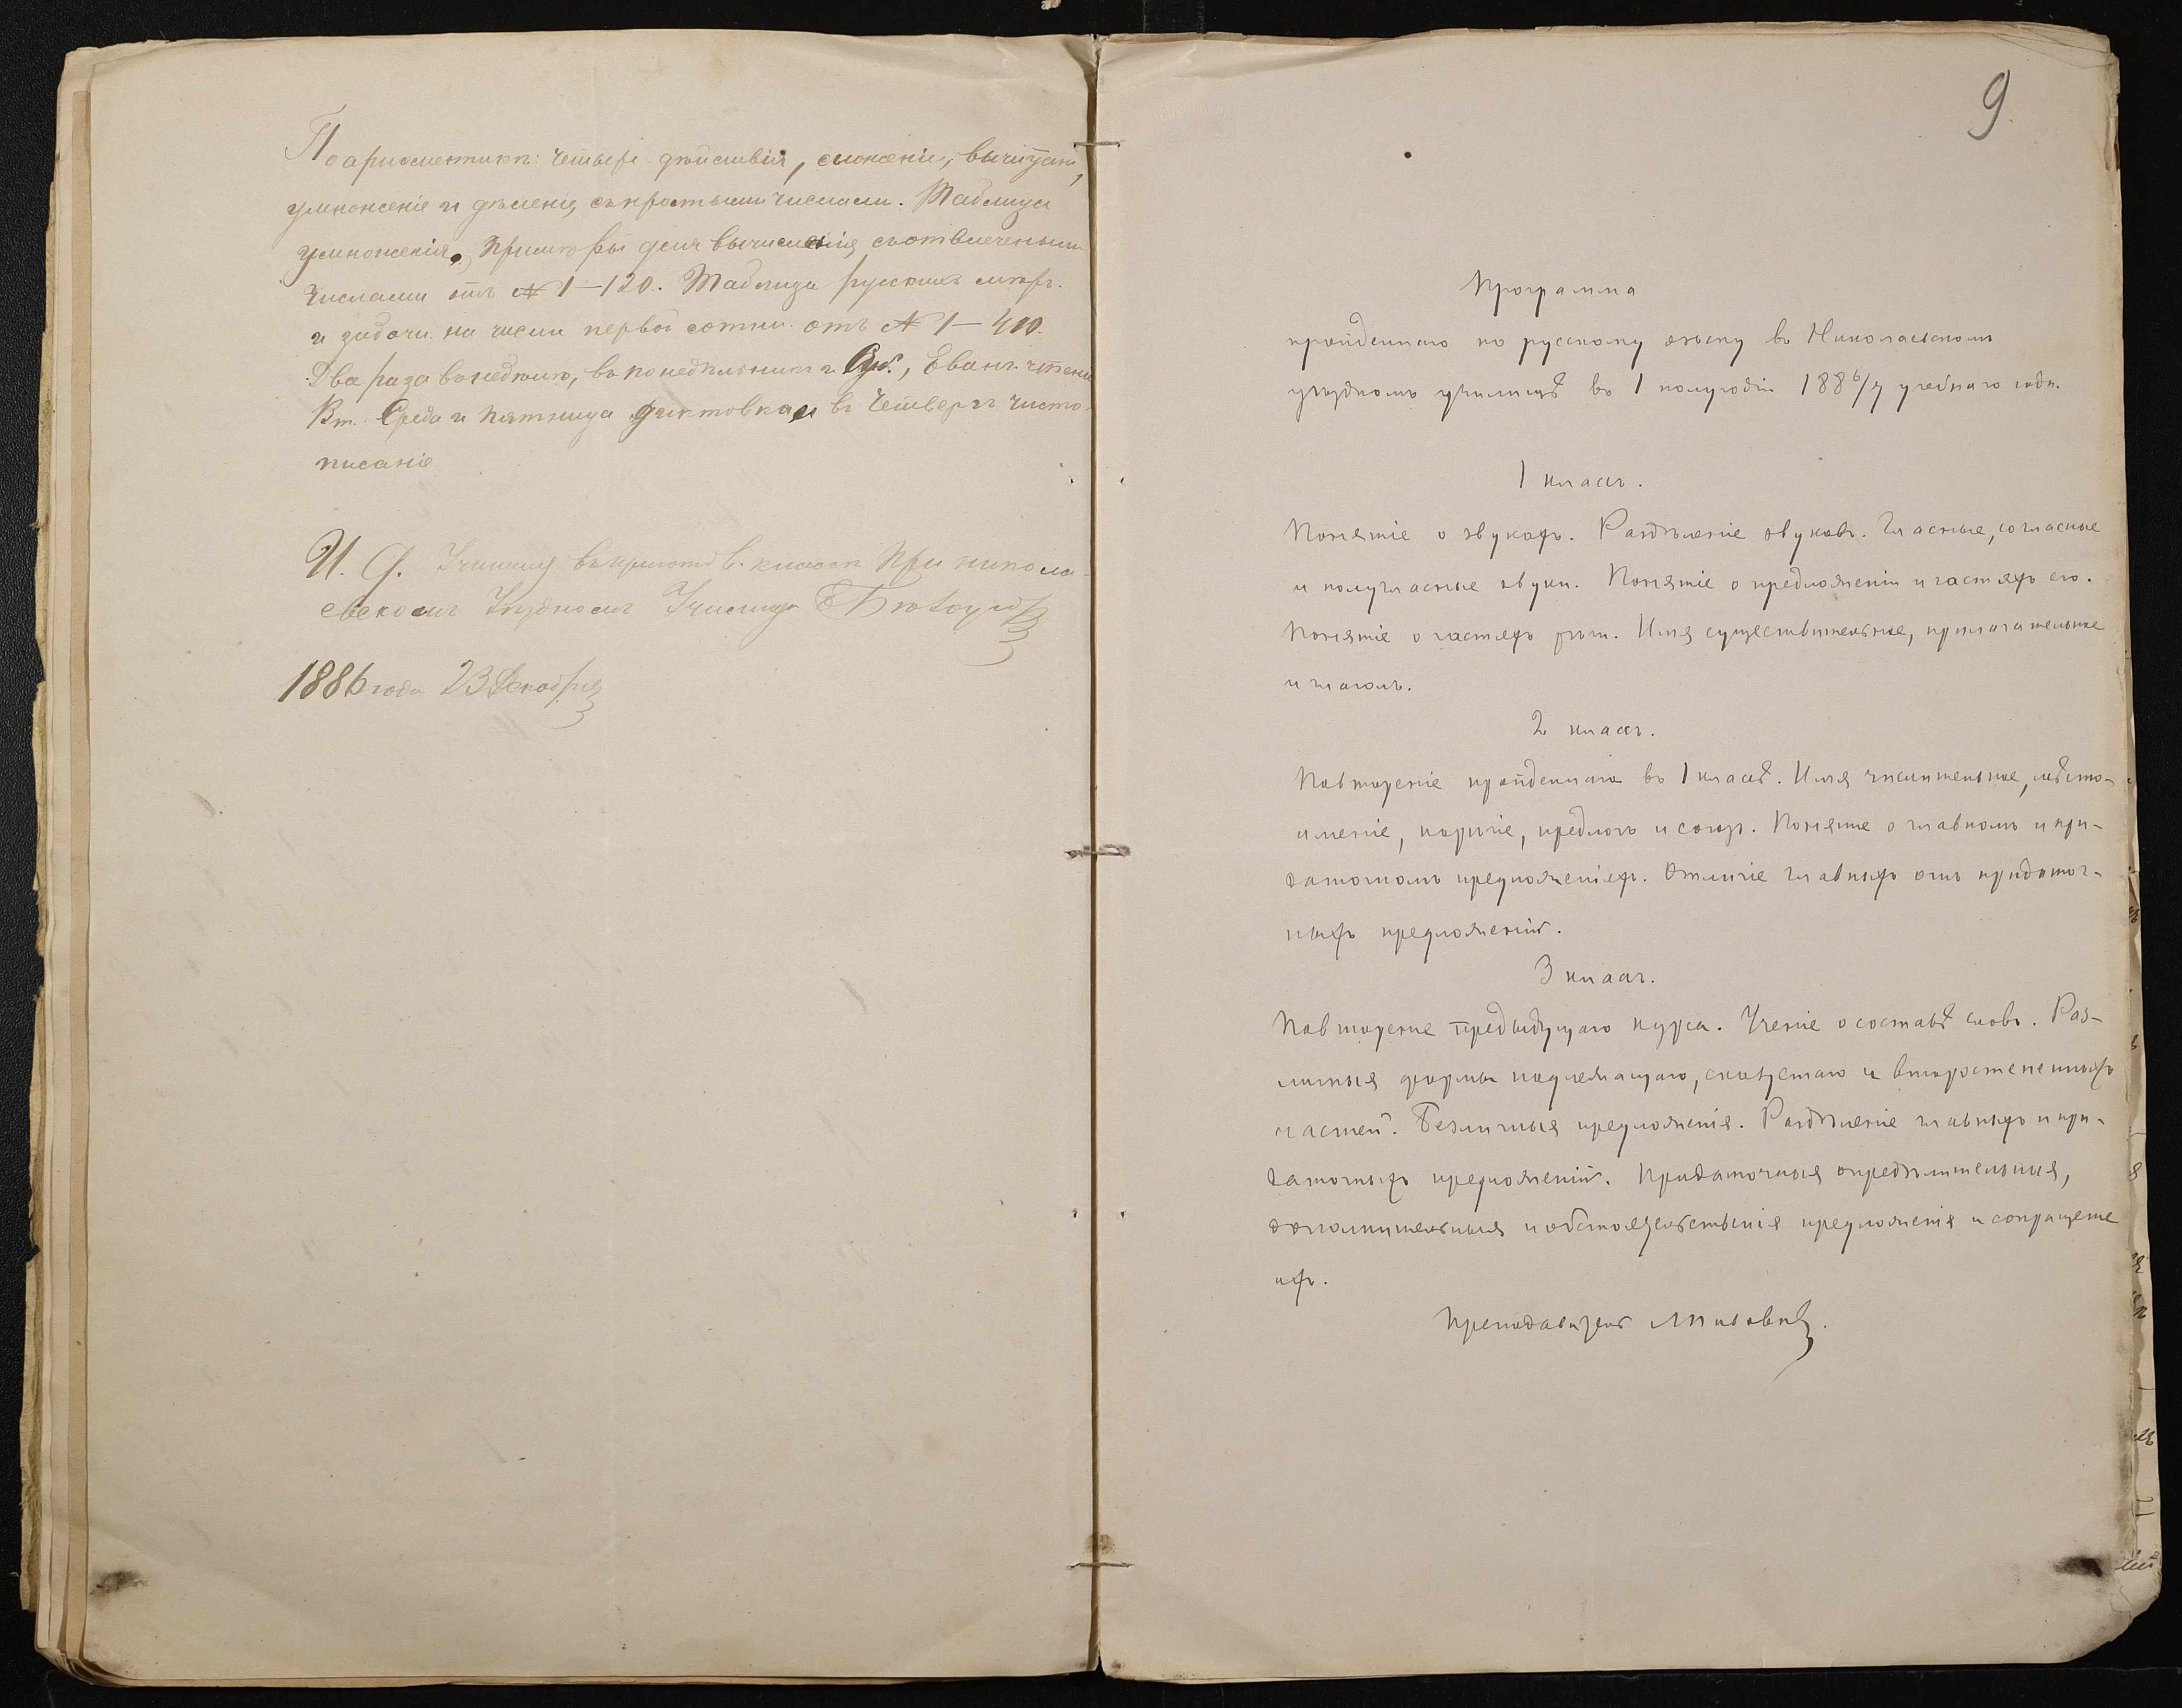 По ариѳметикѣ: четыре дѣйствія, сложеніе, вычитан,
умноженіе и дѣленіе, съ простыми числами. Таблица
умноженія, примѣры для вычисленія съ отвлечеными
числами отъ № 1—120. Таблица русскихъ мѣръ.
и задачи на числа первой сотни отъ № 1—410.
Два раза в неделю, въ понедѣльникъ и Суб., Еванг. чтеніе
Вт. Среда и Пятница диктовка, и въ Четвергъ чисто-
писаніе
И. д. Учителя въ приготов. классѣ при Никола-
евскомъ Уѣздномъ Училищѣ
1886 года 23 Декабря
9
Программа
пройденнаго по русскому языку въ Николаевскомъ
уѣздномъ училищѣ въ 1 полугодіи 1886/7 учебнаго года.
1 классъ.
Понятіе о звукахъ. Раздѣленіе звуковъ. Гласные, согласные
и полугласные звуки. Понятіе о предложеніи и частяхъ его.
Понятіе о частяхъ рѣчи. Имя существительное, прилагательное
и глаголъ.
2 классъ.
Повтореніе пройденнаго въ 1 классѣ. Имя числительное, мѣсто-
именіе, нарѣчіе, предлогъ и союзъ. Понятіе о главномъ и при-
даточномъ предложеніяхъ. Отличіе главныхъ отъ придаточ-
ныхъ предложеній.
3 классъ.
Повтореніе предыдущаго курса. Ученіе о составѣ словъ. Раз-
личныя формы подлежащаго, сказуемаго и второстепенныхъ
частей. Безличныя предложенія. Раздѣленіе главныхъ и при-
даточныхъ предложеній. Придаточныя опредѣлительныя,
дополнительныя и обстоятельственныя предложенія и сокращеніе
ихъ.
Преподаватель